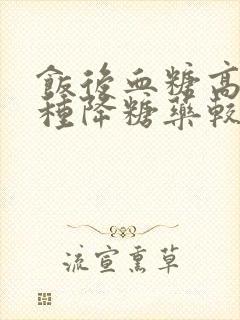 飯後血糖高
種降糖藥較
流宣熏草